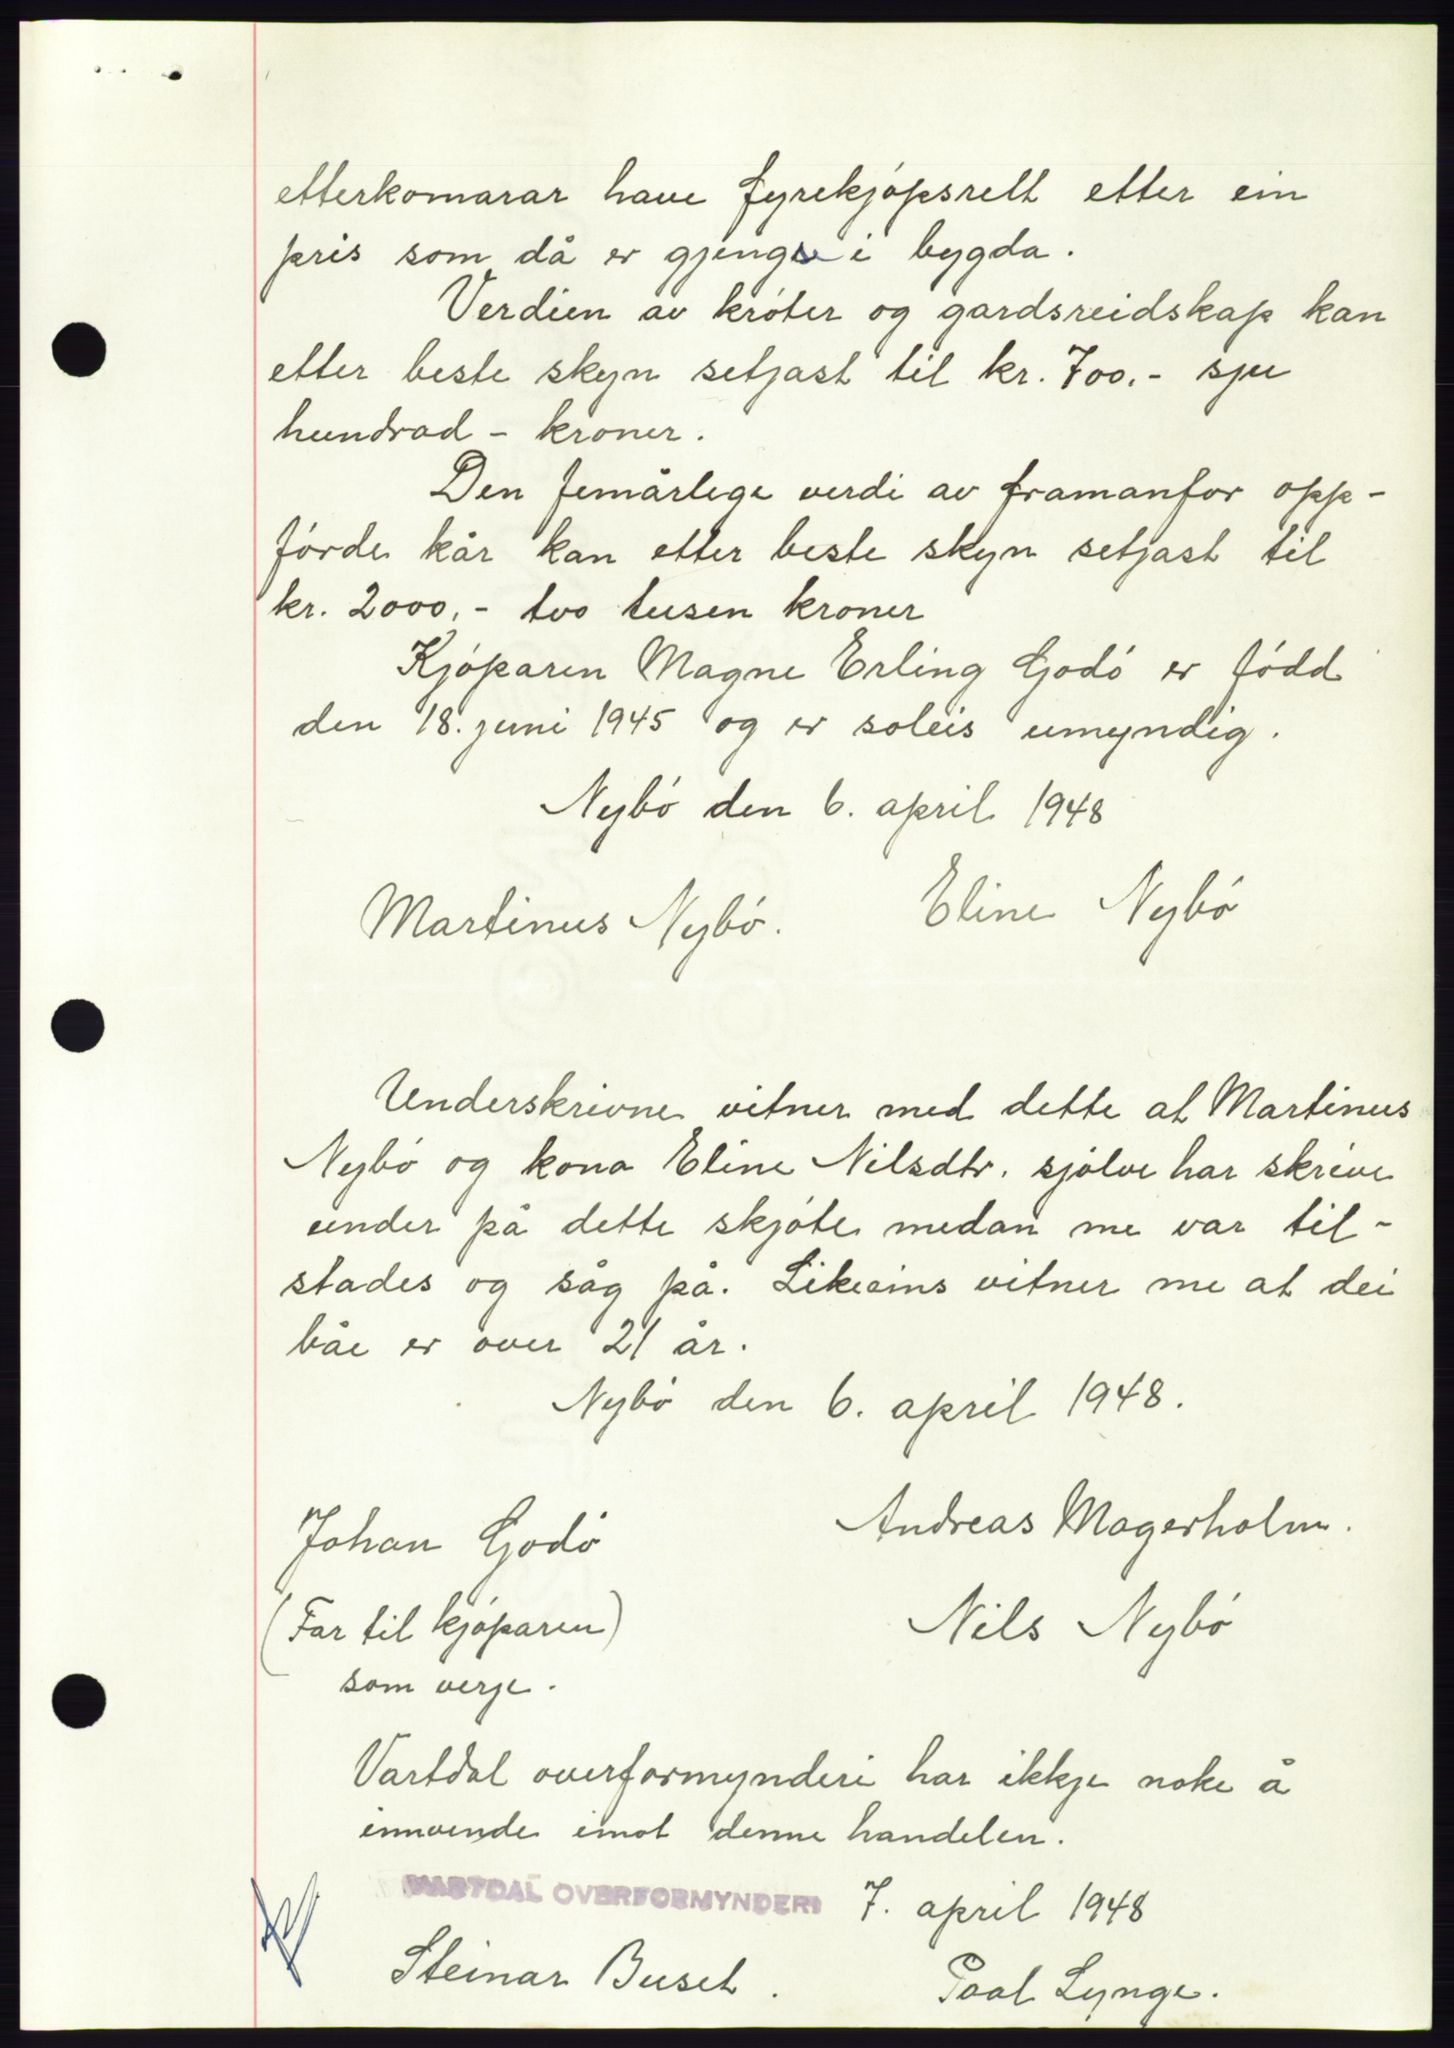 etterkomarar have fyrekjópsrett etter ein
pris som då er gjengse i bygda.
Verdien av króter og gardsreidskap kan
etter beste skyn setjast til kr. 700.- sju
hundrad - kroner.
Den femårlege verdi av framanfor opp-
fórde kår kan etter beste skyn setjast til
kr. 2000.- tvo tusen kroner
Kjóparen Magne Erling Godó er fódd
den 18. juni 1945 og er soleis umyndig.
Nybó den 6. april 1948
Martinus Nybó. Eline Nybó
Underskrivne vitner med dette at Martinus
Nybó og kona Eline Nilsdtr. sjólve har skrive
under på dette skjóte medan me var til-
stades og såg på. Likeeins vitner me at dei
båe er over 21 år.
Nybó den 6. april 1948.
Johan Godó Andreas Magerholm.
(Far til kjóparen) Nils Nybó
som verje.
Vartdal overformynderi har ikkje noke å
innvende imot denne handelen.
VARTDAL OVERFORMYNDERI 7. april 1948
Steinar Buset. Paal Lynge.